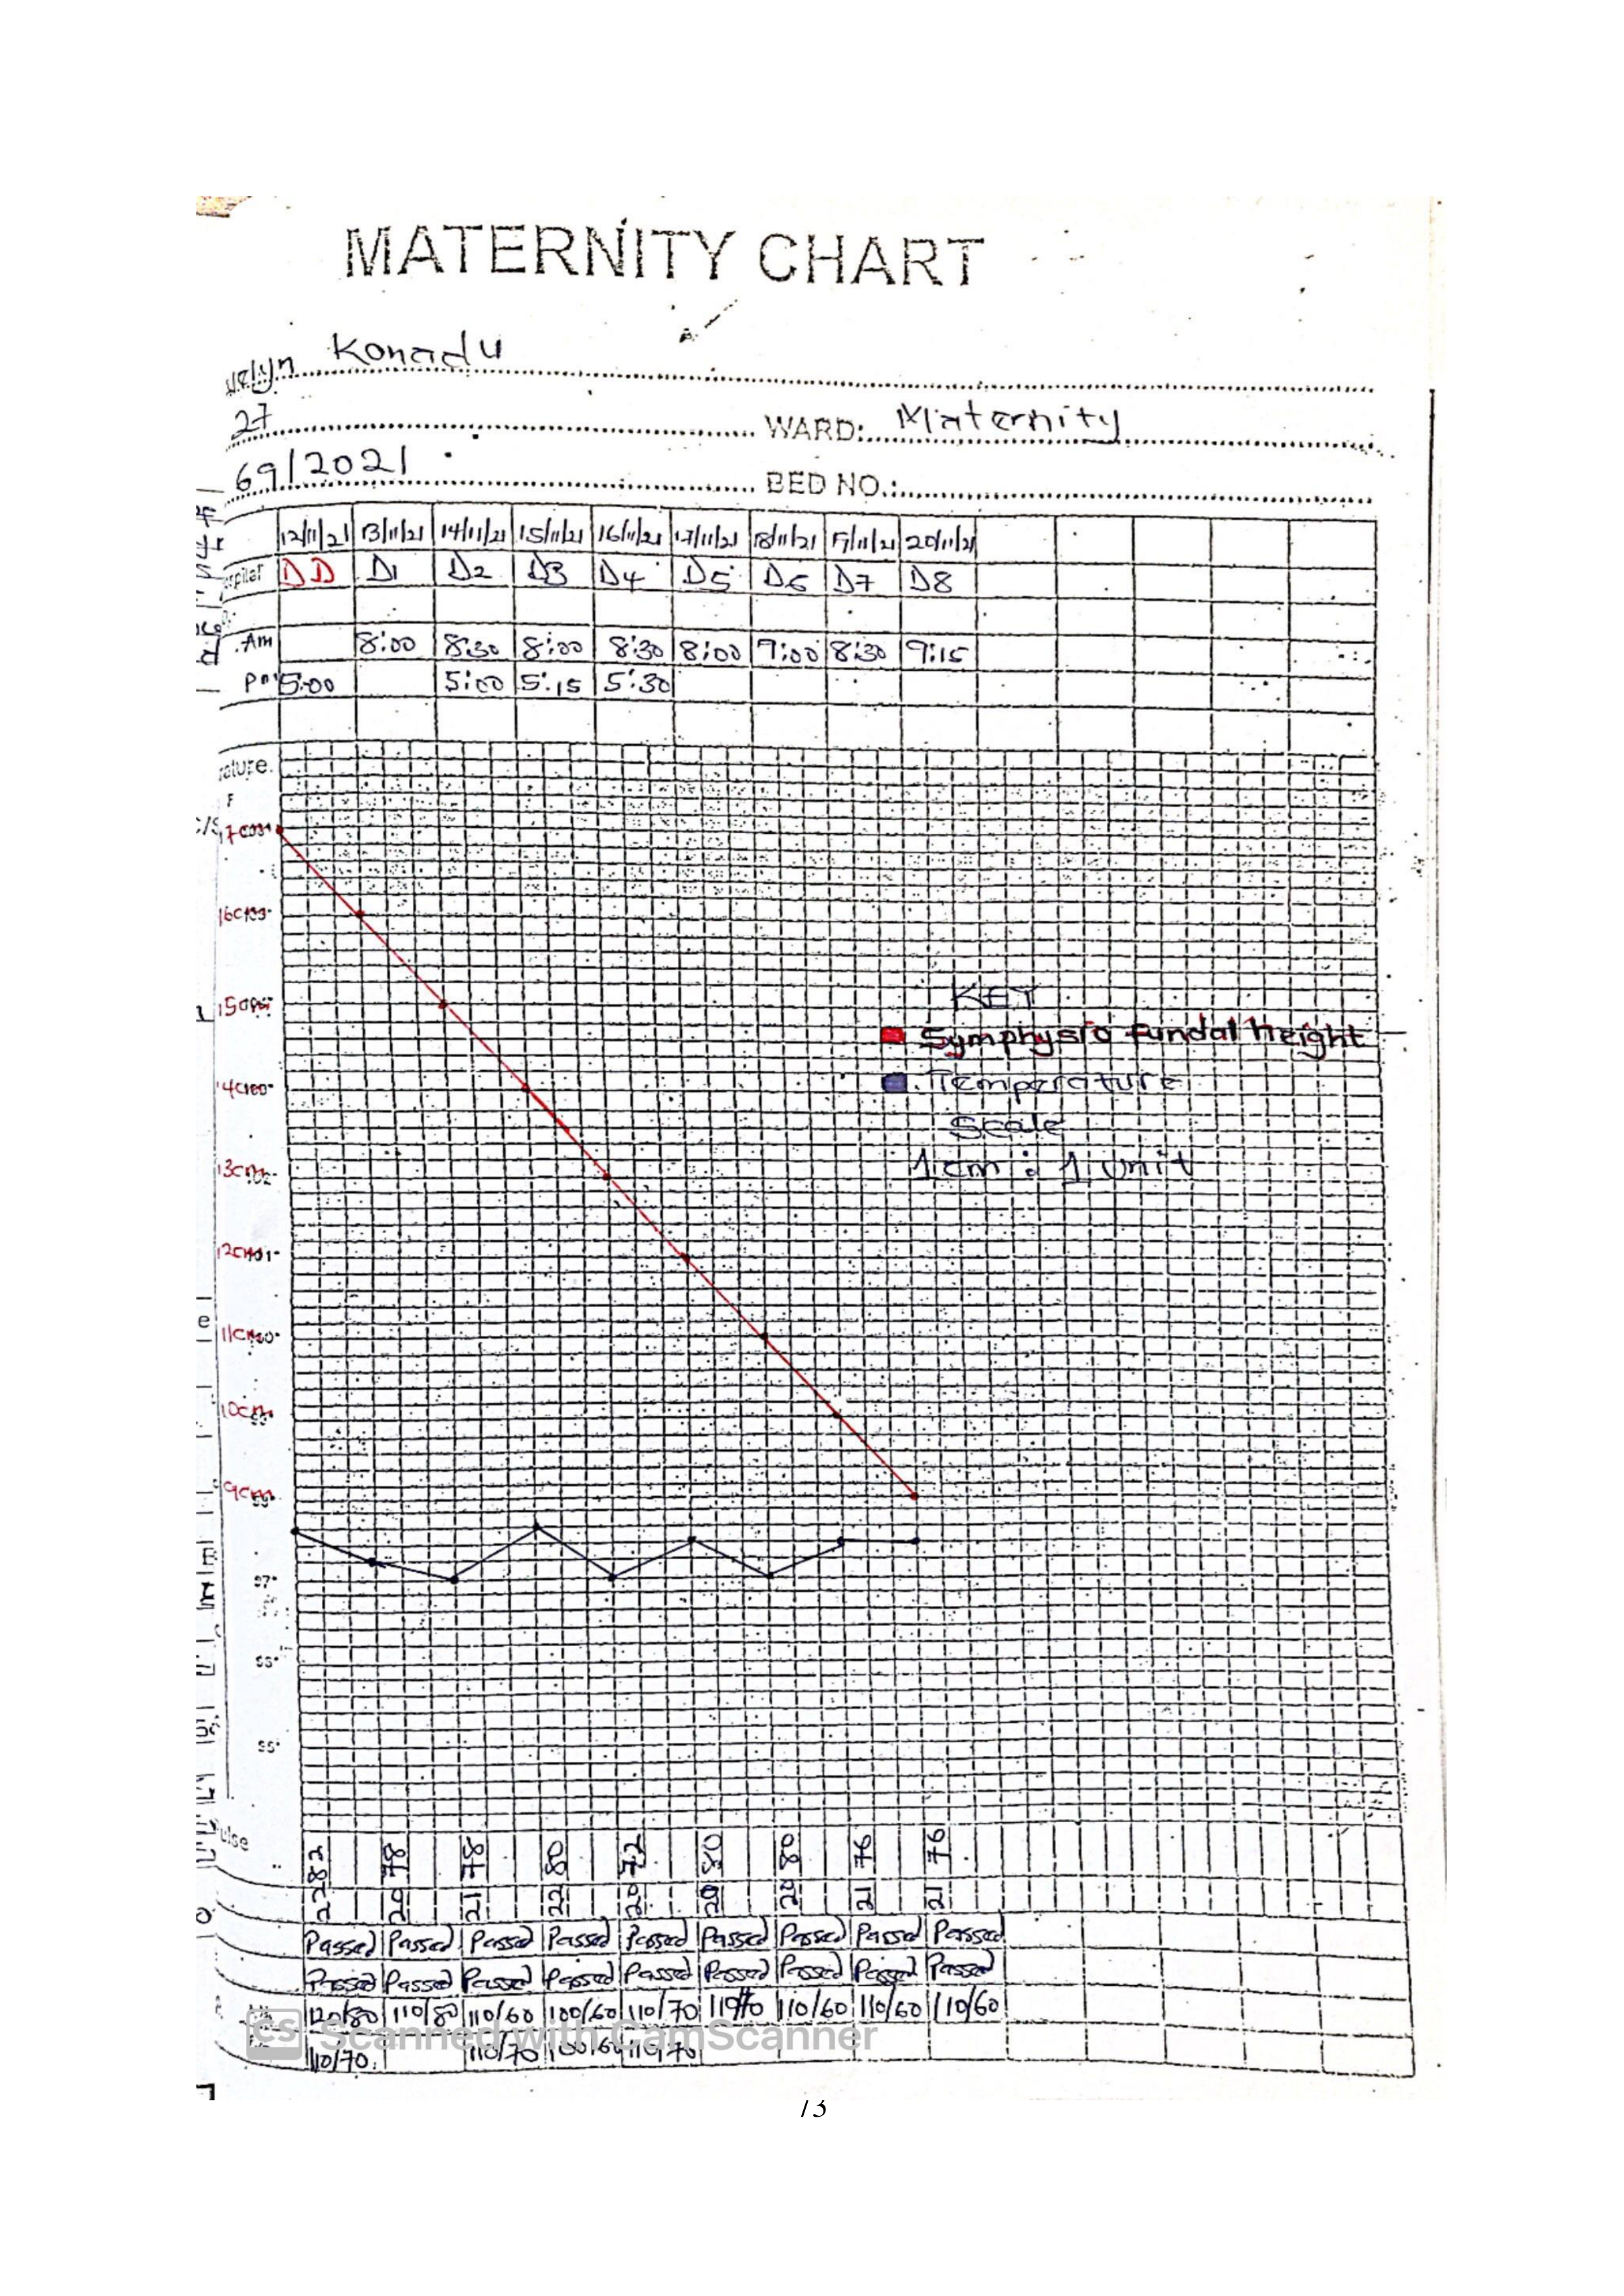 MATERNITY CHART
Konadu
27 WARD: Maternity
69/2021 BED NO.:
12/11/21 13/11/21 14/11/21 15/11/21 16/11/21 17/11/21 18/11/21 19/11/21 20/11/21
DD D1 D2 D3 D4 D5 D6 D7 D8
Am 8:00 8:30 8:00 8:30 8:00 9:00 8:30 9:15
5:00 5:00 5:15 5:30
F
16cm
15cm
KEY
Symphysio fundal height
Temperature
Scale
1cm : 1 unit
13cm
12cm
11cm
10cm
9cm
97°
82 78 78 80 72 80 80 76 76
22 20 21 22 20 20 20 21 21
Passed Passed Passed Passed Passed Passed Passed Passed Passed
Passed Passed Passed Passed Passed Passed Passed Passed Passed
120/80 110/80 110/60 100/60 110/70 110/60 110/60 110/60
110/70 110/70 100/60 110/70
CS Scanned with CamScanner
73